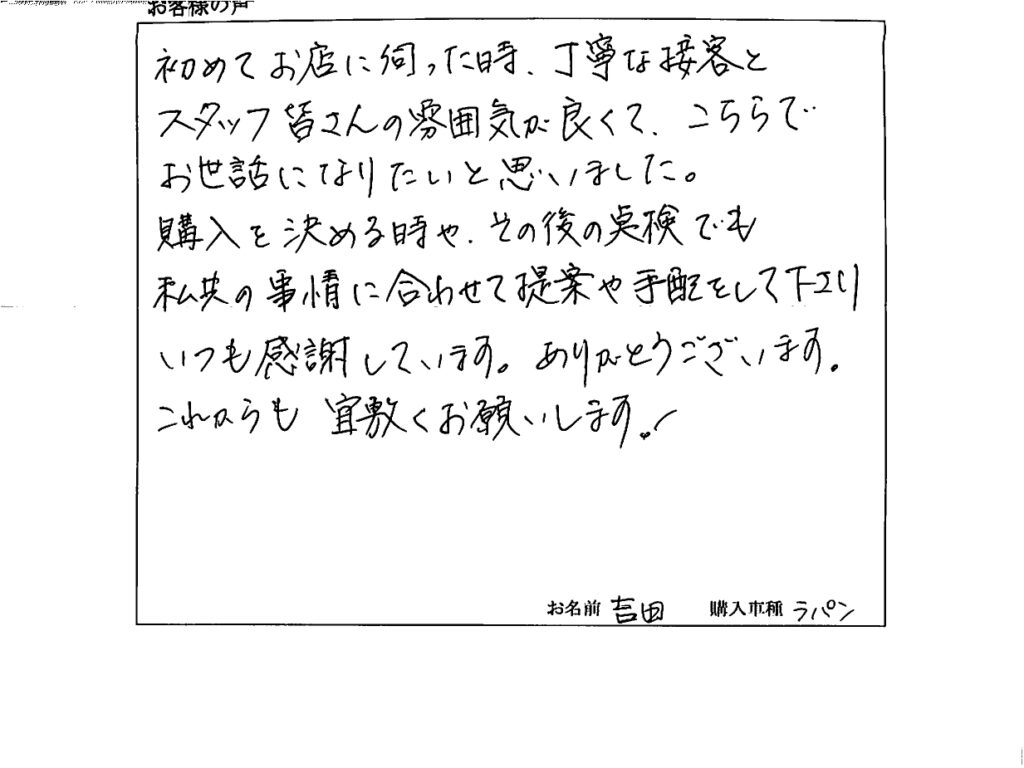 お客様の声
初めてお店に伺った時、丁寧な接客と
スタッフ皆さんの雰囲気が良くて、こちらで
お世話になりたいと思いました。
購入を決める時や、その後の点検でも
私共の事情に合わせて提案や手配をして下さり
いつも感謝しています。ありがとうございます。
これからも宜敷くお願いします。
お名前 吉田 購入車種 ラパン